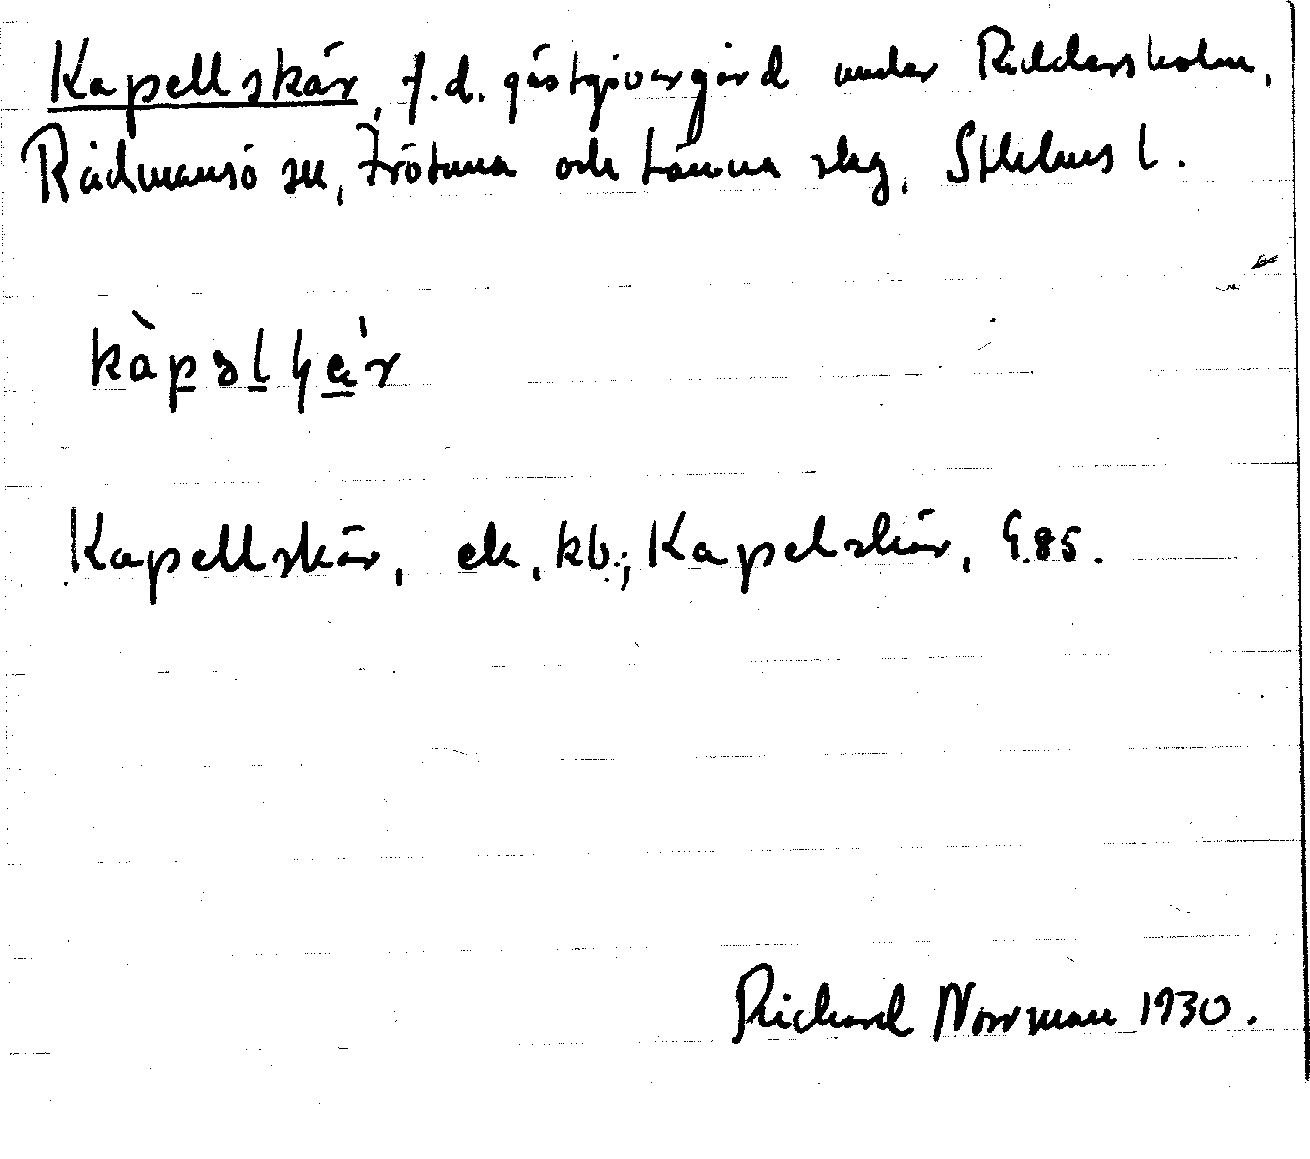 Kapellskär, f.d. gästgivargård under Riddersholm,
Rådmansö sn, Frötuna och Länna skg, Sthlms l.
Kapellskär, ek, kb.; Kapelskär, G.85.
Richard Norrman 1930.